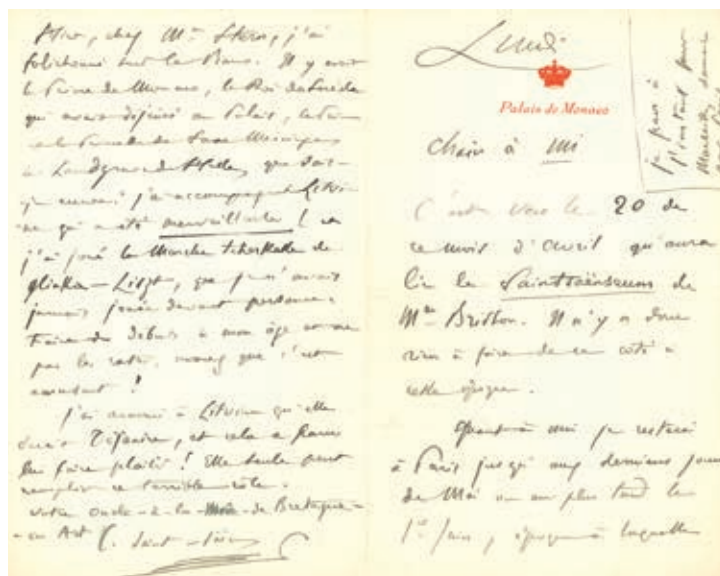 Hier, chez Mme Stern, j'ai
sur le Piano. Il y avait
le Prince de Monaco, le Roi de Suède
qui avait déjeuné au Palais, le
et la Princesse de Saxe Meiningen
le Landgrave de Hesse, que sais-
je encore! j'ai accompagné Litvin-
ne qui a été merveilleuse (et
j'ai joué la Marche tcherkesse de
Glinka-Liszt, que je n'avais
jamais jouée devant personne.
Faire des débuts à mon âge et ne
pas les rater, avouez que c'est
amusant!
J'ai annoncé à Litvinne qu'elle
serait Déjanire, et cela a paru
lui faire plaisir! Elle seule peut
remplir ce terrible rôle.
Votre oncle-à-la-Mode-de-Bretagne-
-en Art C. Saint-Saëns
Lundi
Palais de Monaco
je pars à
l'instant pour
Marseille,
Chair à mi
C'est vers le 20 de
ce mois d'avril qu'aura
lieu le Saintsaënseum de
Mme Britton. Il n'y a donc
rien à faire de ce côté à
cette époque.
Quant à mi je resterai
à Paris jusqu'aux derniers jours
de Mai ou au plus tard le
1er Juin, époque à laquelle